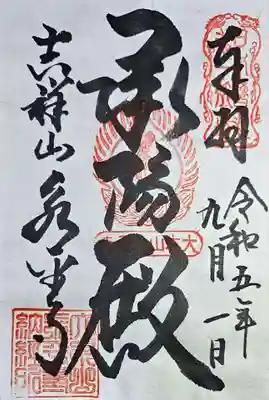 奉拝
令和五年
九月一日
承陽殿
吉祥山永平寺